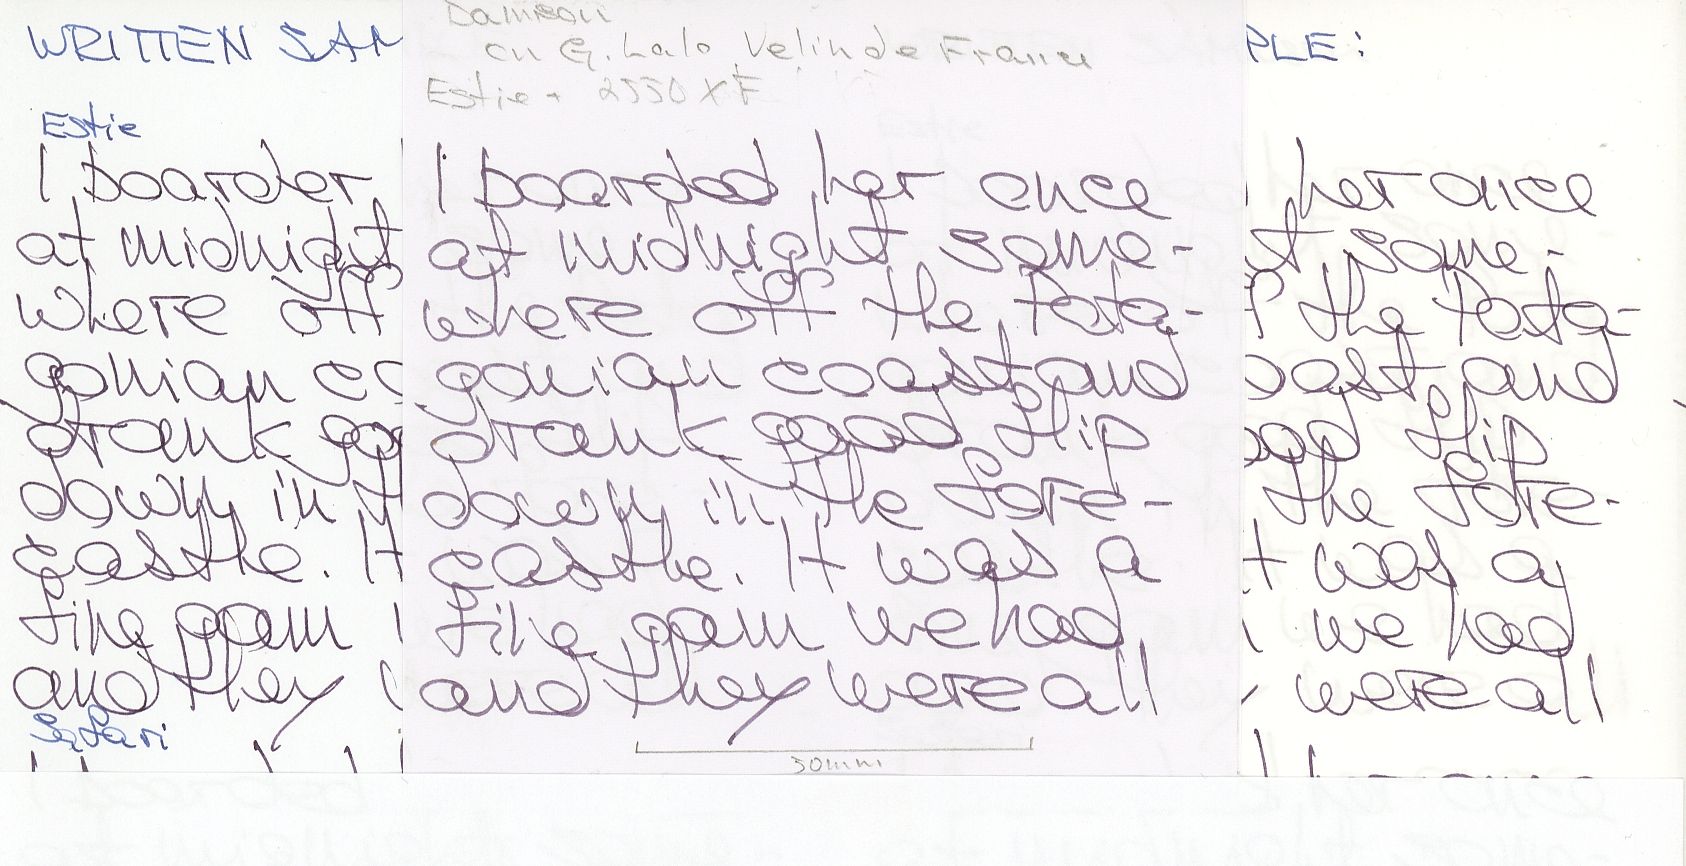 WRITTEN SAM
Estie
I boarder
at midnight
where off
gonian co
drank goo
down in t
castle. It
fine gam
and they
Safari
Damson
on G. Lalo Velin de France
Estie + 2550 XF
I boarded her once
at midnight some-
where off the Pata-
gonian coast and
drank good flip
down in the fore-
castle. It was a
fine gam we had
and they were all
30mm
PLE:
her once
t some-
f the Pata-
oast and
ood flip
the fore-
t was a
we had
were all